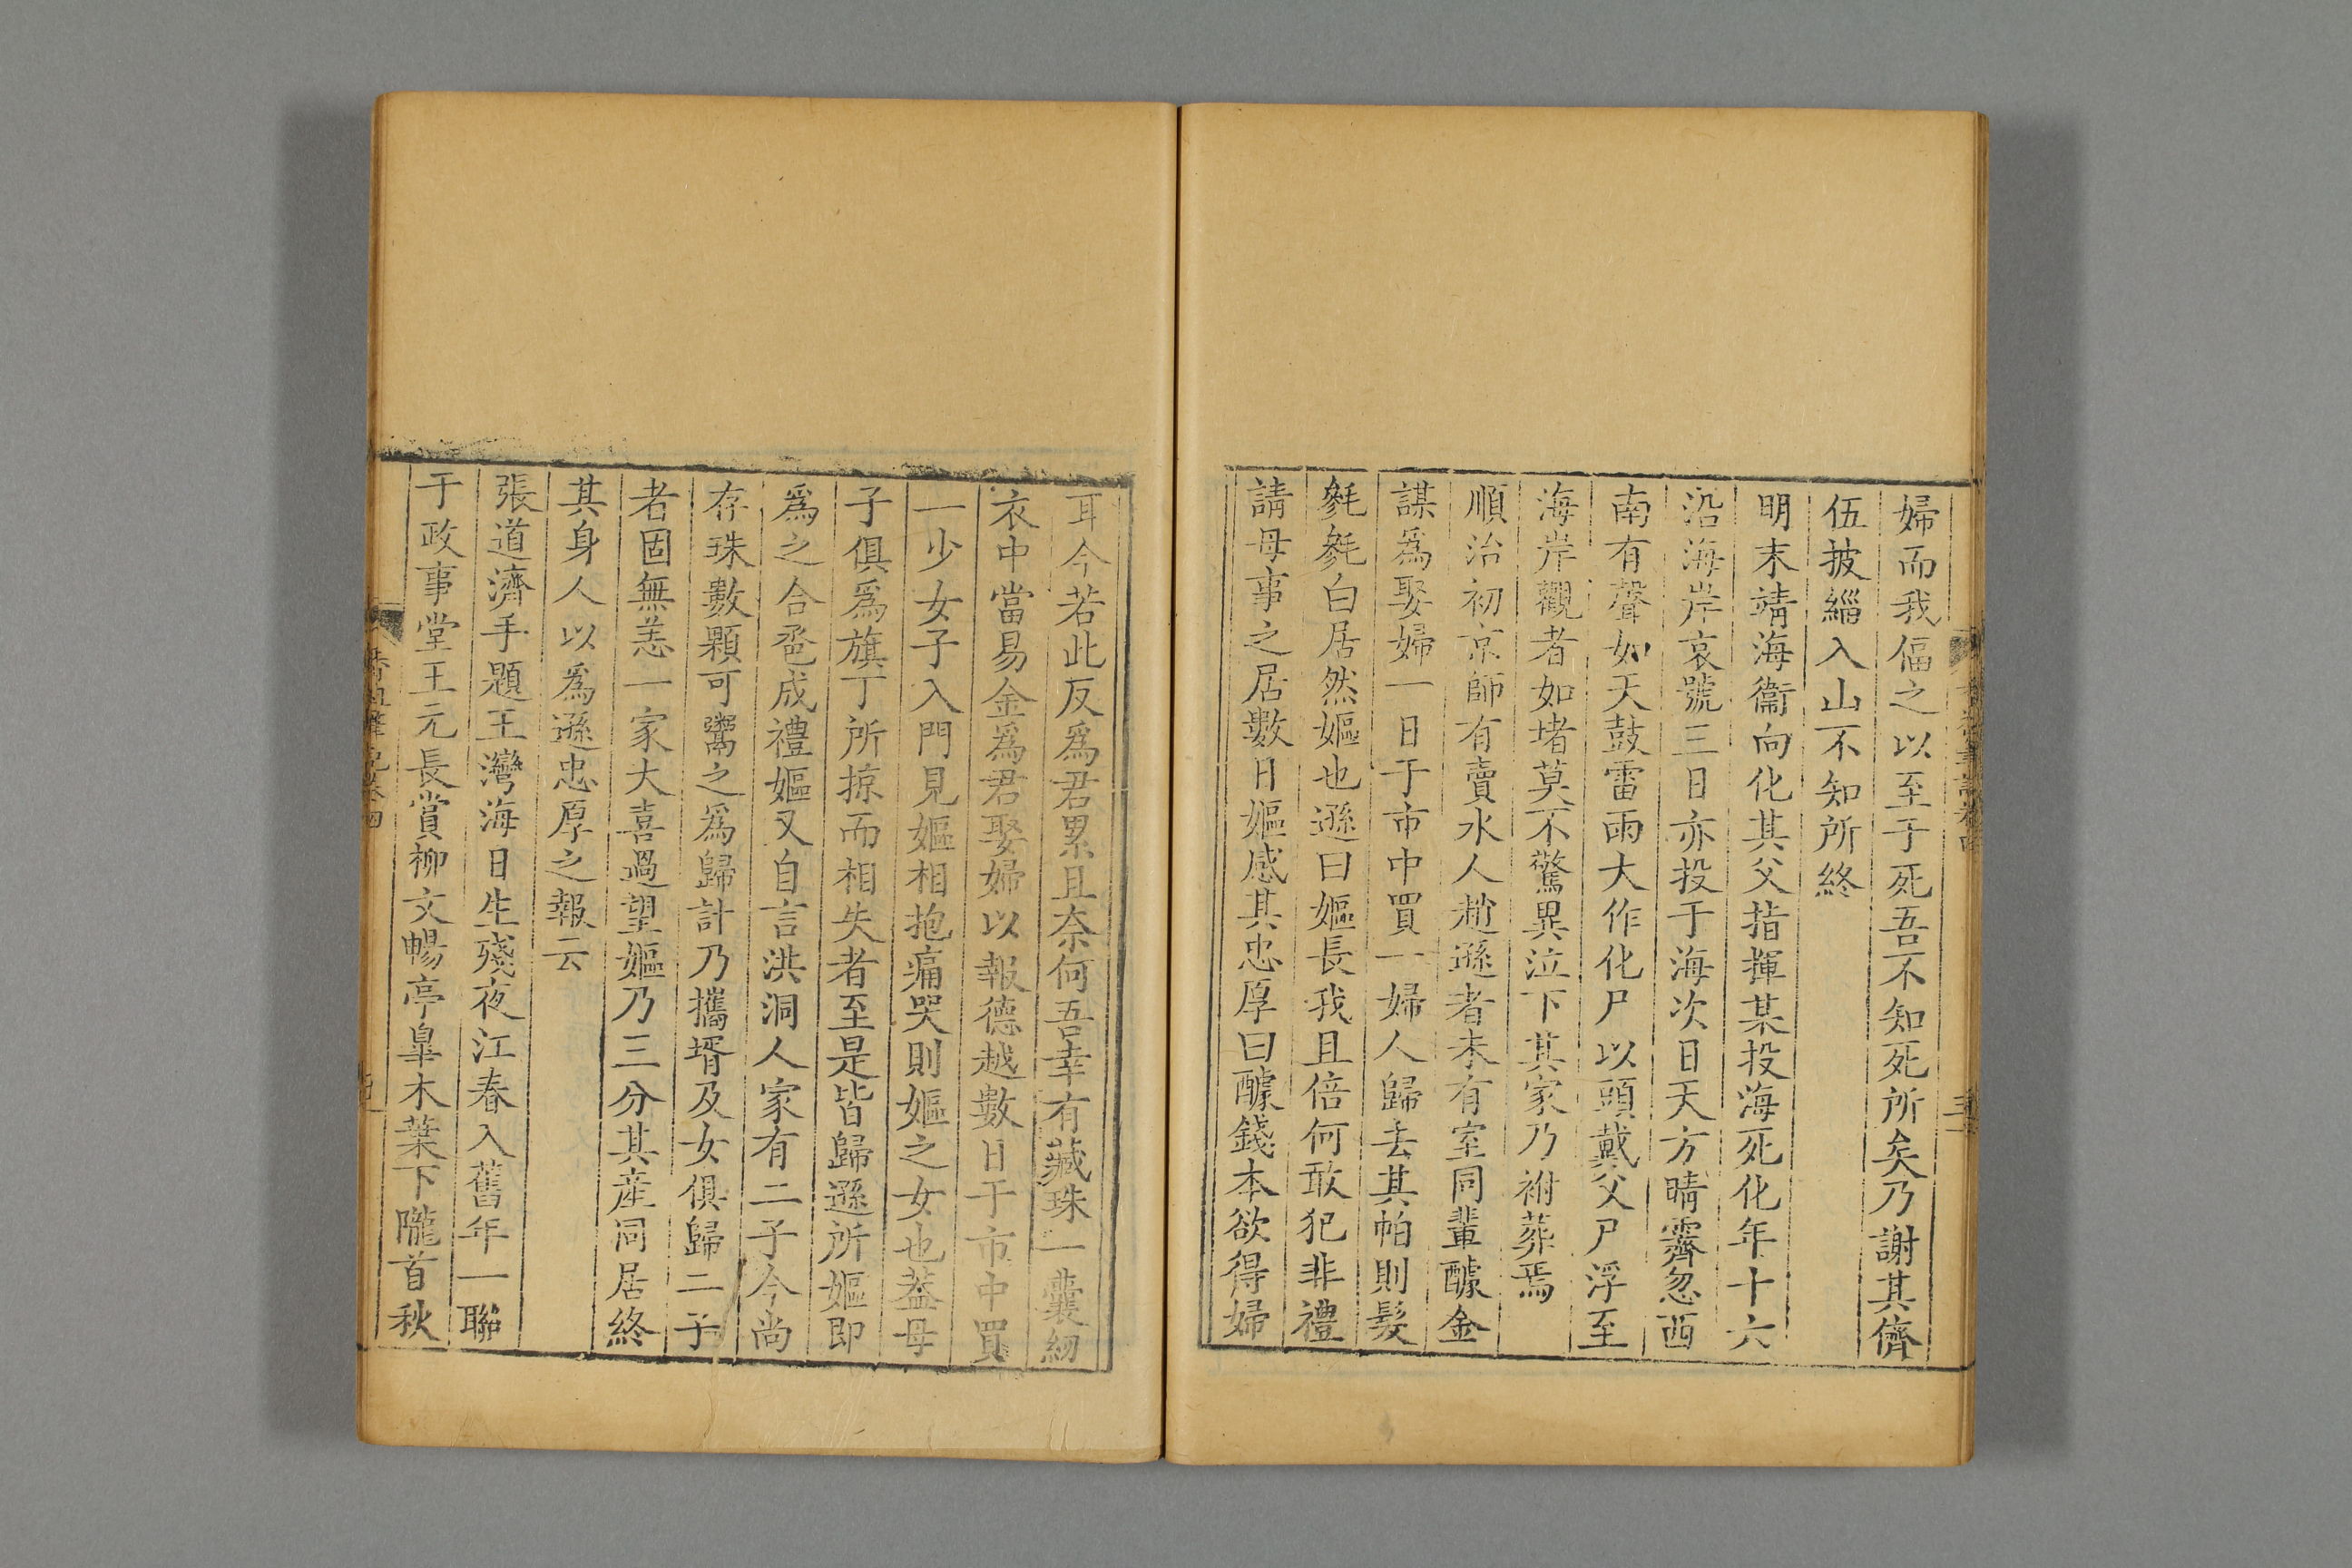 婦而我偪之以至于死吾不知死所矣乃謝其儕
伍披緇入山不知所終
明末靖海衞向化其父指揮某投海死化年十六
沿海岸哀號三日亦投于海次日天方晴霽忽西
南有聲如天鼓雷雨大作化尸以頭戴父尸浮至
海岸觀者如堵莫不驚異泣下其家乃祔葬焉
順治初京師有賣水人趙遜者未有室同輩醵金
謀爲娶婦一日于市中買一婦人歸去其帕則髮
毿毿白居然嫗也遜曰嫗長我且倍何敢犯非禮
請母事之居數日嫗感其忠厚曰醵錢本欲得婦
耳今若此反爲君累且奈何吾幸有藏珠一囊紉
衣中當易金爲君娶婦以報德越數日于市中買
一少女子入門見嫗相抱痛哭則嫗之女也蓋母
子俱爲旗丁所掠而相失者至是皆歸遜所嫗即
爲之合卺成禮嫗又自言洪洞人家有二子今尚
存珠數顆可鬻之爲歸計乃攜壻及女俱歸二子
者固無恙一家大喜過望嫗乃三分其產同居終
其身人以爲遜忠厚之報云
張道濟手題王灣海日生殘夜江春入舊年一聯
于政事堂王元長賞柳文暢亭皐木葉下隴首秋
香祖筆記卷四